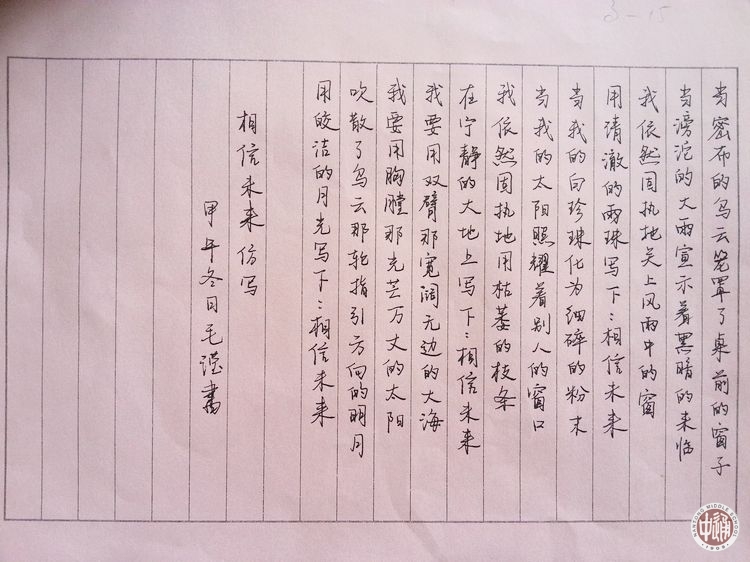 当密布的乌云笼罩了桌前的窗子
当滂沱的大雨宣示着黑暗的来临
我依然固执地关上风雨中的窗
用清澈的雨珠写下:相信未来
当我的白珍珠化为细碎的粉末
当我的太阳照耀着别人的窗口
我依然固执地用枯萎的枝条
在宁静的大地上写下:相信未来
我要用双臂那宽阔无边的大海
我要用胸膛那光芒万丈的太阳
吹散了乌云那轮指引方向的明月
用皎洁的月光写下:相信未来
相信未来仿写
甲午冬日毛滢書
3-15
NANTONG MIDDLE SCHOOL
通中
1909